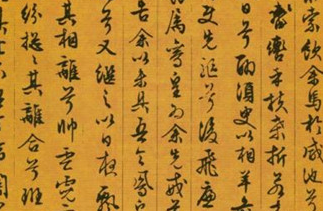 索飲余馬於咸池兮
轡乎扶桑折若
日兮聊須臾以相羊
先驅兮後飛廉
屬鸞皇為余先戒
告余以未具吾令鳳
兮又繼之以日夜飄
其相離兮帥雲霓
紛摠摠其離合兮班